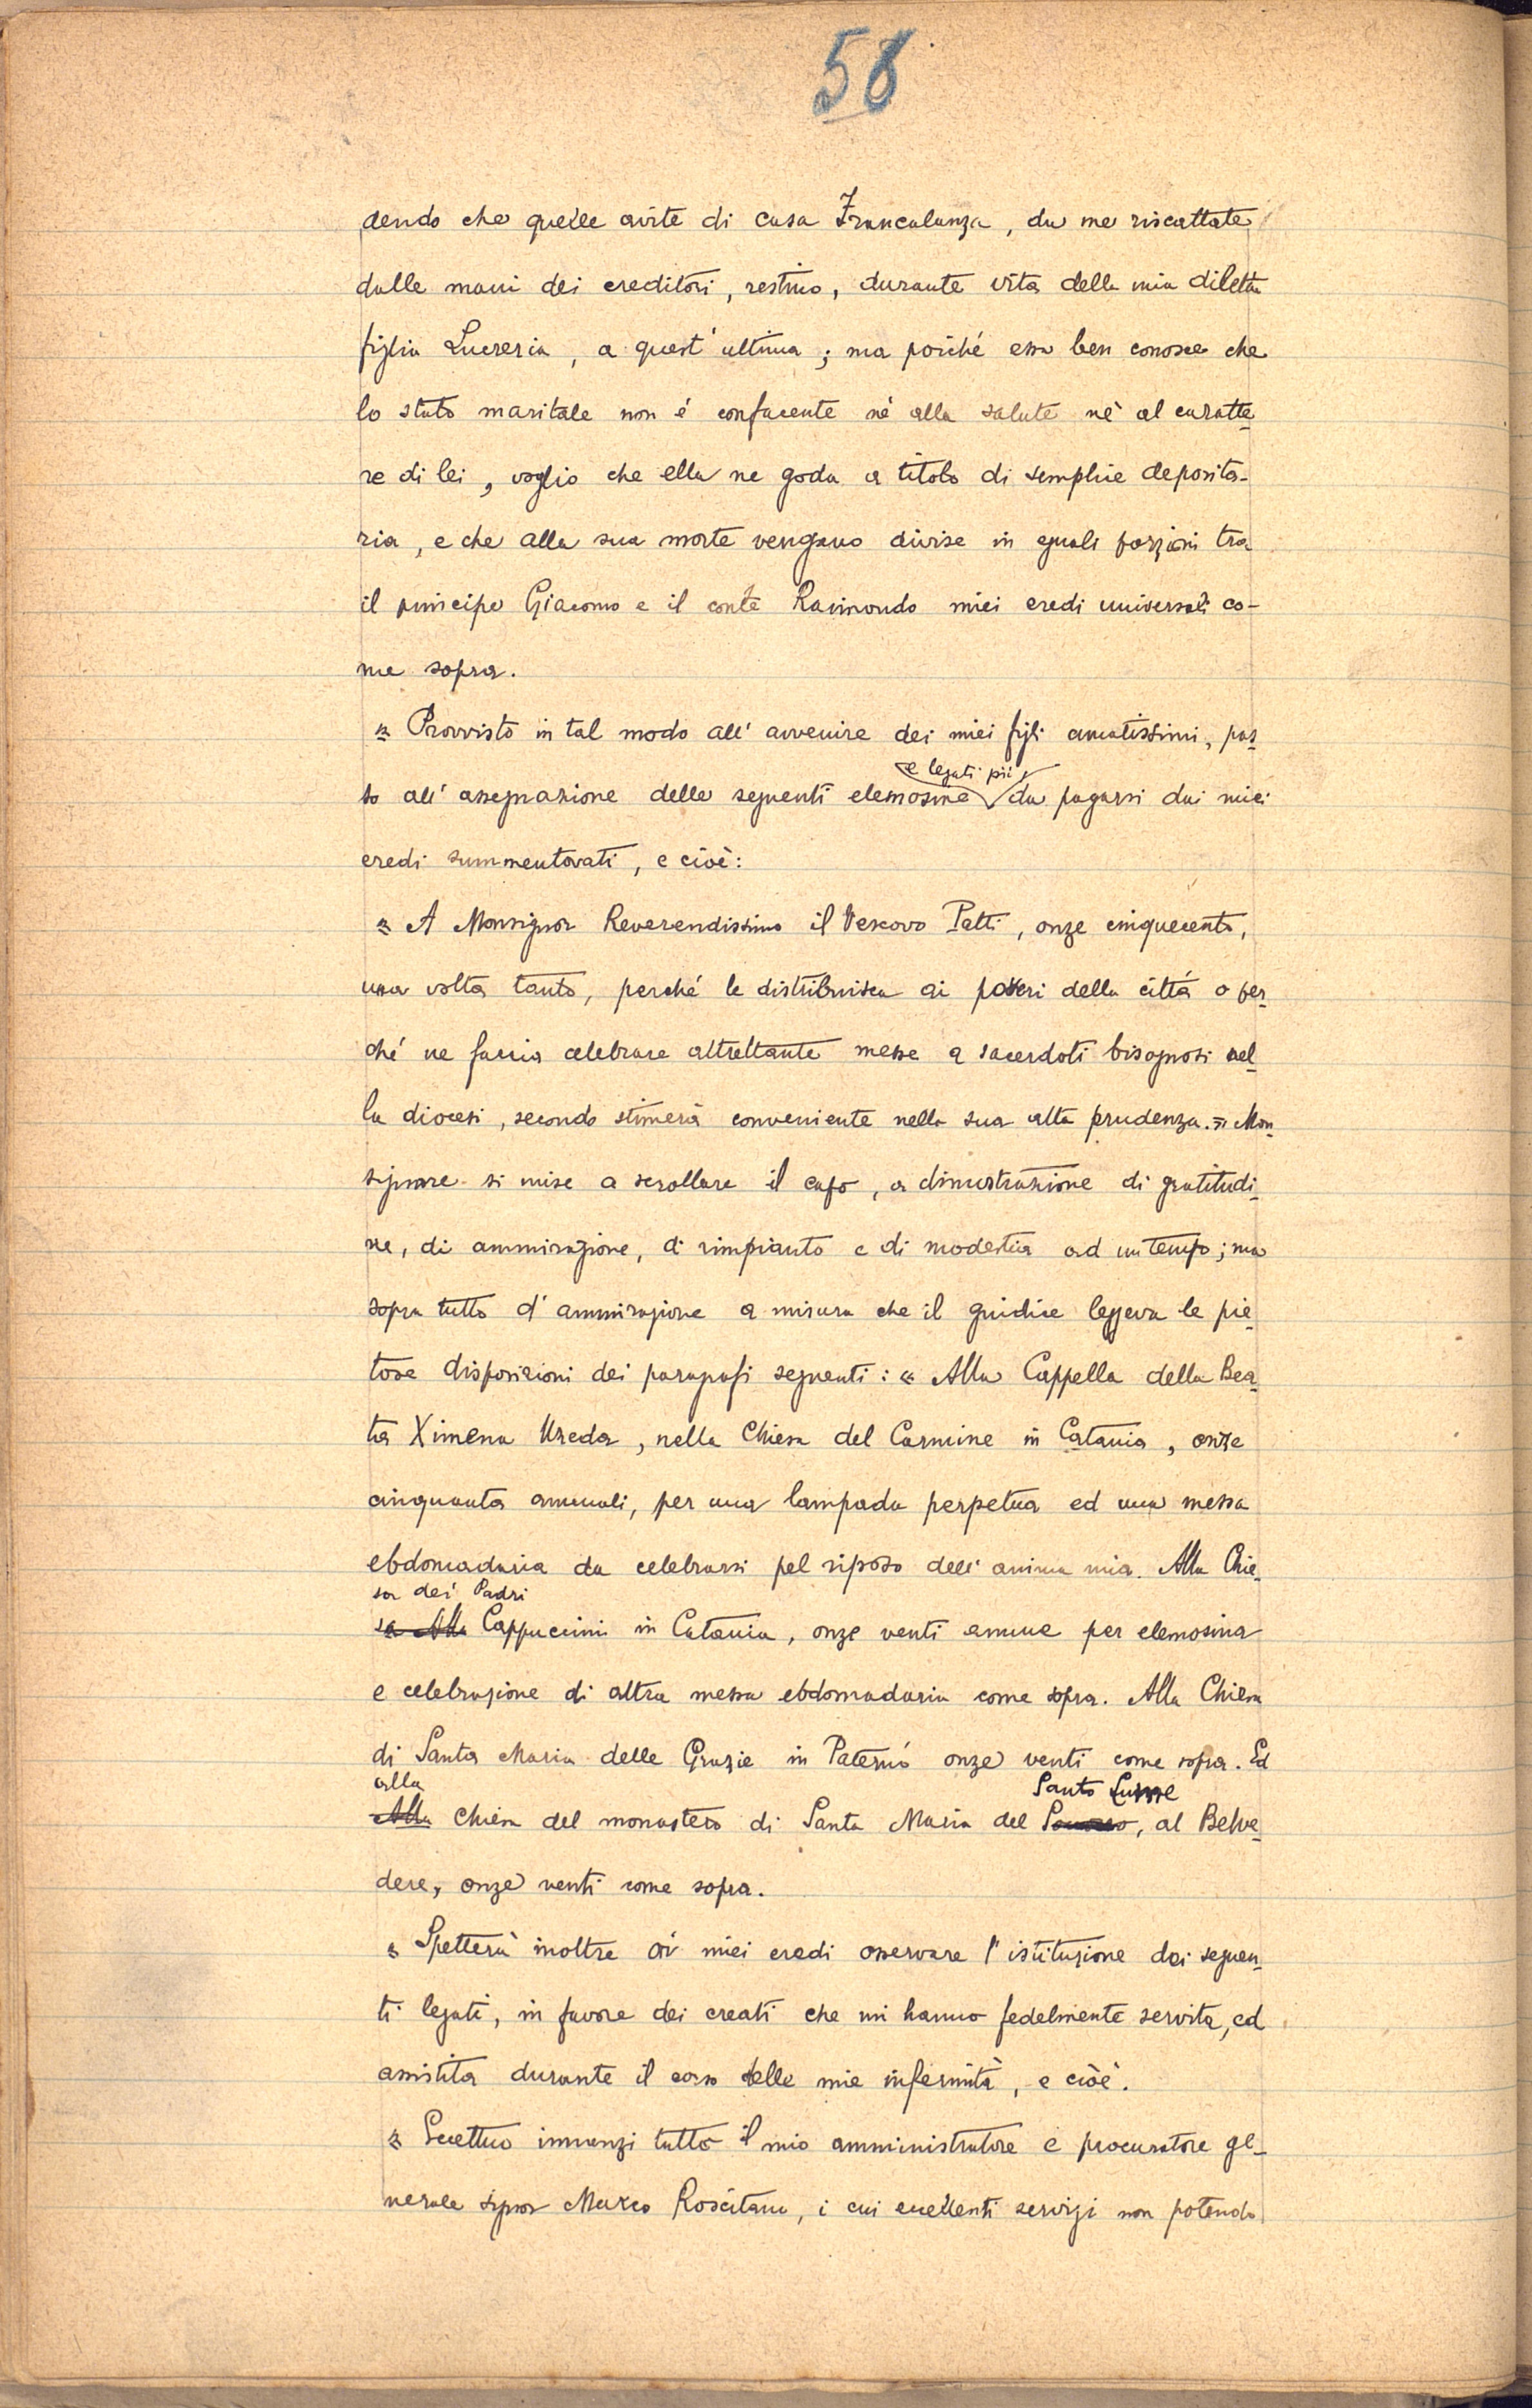 58
dendo che quelle avite di casa Francalanza, da me riscattate
dalle mani dei creditori, restino, durante vita della mia diletta
figlia Lucrezia, a quest'ultima; ma poiché essa ben conosce che
lo stato maritale non é confacente né alla salute nè al caratte-
re di lei, voglio che ella ne goda a titolo di semplice deposita-
ria, e che alla sua morte vengano divise in eguali porzioni tra
il principe Giacomo e il conte Raimondo miei eredi universali co-
me sopra.
« Provvisto in tal modo all'avvenire dei miei figli amatissimi, pas-
e legati pii
so all'assegnazione delle seguenti elemosine da pagarsi dai miei
eredi summentovati, e cioè:
« A Monsignor Reverendissimo il Vescovo Patti, onze cinquecento,
una volta tanto, perché le distribuisca ai poveri della città o per-
ché ne faccia celebrare altrettante messe a sacerdoti bisognosi nel-
la diocesi, secondo stimerà conveniente nella sua alta prudenza.» Mon-
signore si mise a scrollare il capo, a dimostrazione di gratitudi-
ne, di ammirazione, di rimpianto e di modestia ad un tempo; ma
sopra tutto d'ammirazione a misura che il giudice leggeva le pie-
tose disposizioni dei paragrafi seguenti: « Alla Cappella della Bea-
ta Ximena Uzeda, nella Chiesa del Carmine in Catania, onze
cinquanta annuali, per una lampada perpetua ed una messa
ebdomadaria da celebrarsi pel riposo dell'anima mia. Alla Chie-
sa dei Padri
sa Alla Cappuccini in Catania, onze venti annue per elemosina
e celebrazione di altra messa ebdomadaria come sopra. Alla Chiesa
di Santa Maria delle Grazie in Paternò onze venti come sopra. Ed
alla
Santo Lume
Alla Chiesa del monastero di Santa Maria del , al Belve-
dere, onze venti come sopra.
« Spetterà inoltre ai miei eredi osservare l'istituzione dei seguen-
ti legati, in favore dei creati che mi hanno fedelmente servita, ed
assistita durante il corso delle mie infermità, e cioè.
« Eccettuo innanzi tutto il mio amministratore e procuratore ge-
nerale signor Marco Roscitano, i cui eccellenti servizi non potendo